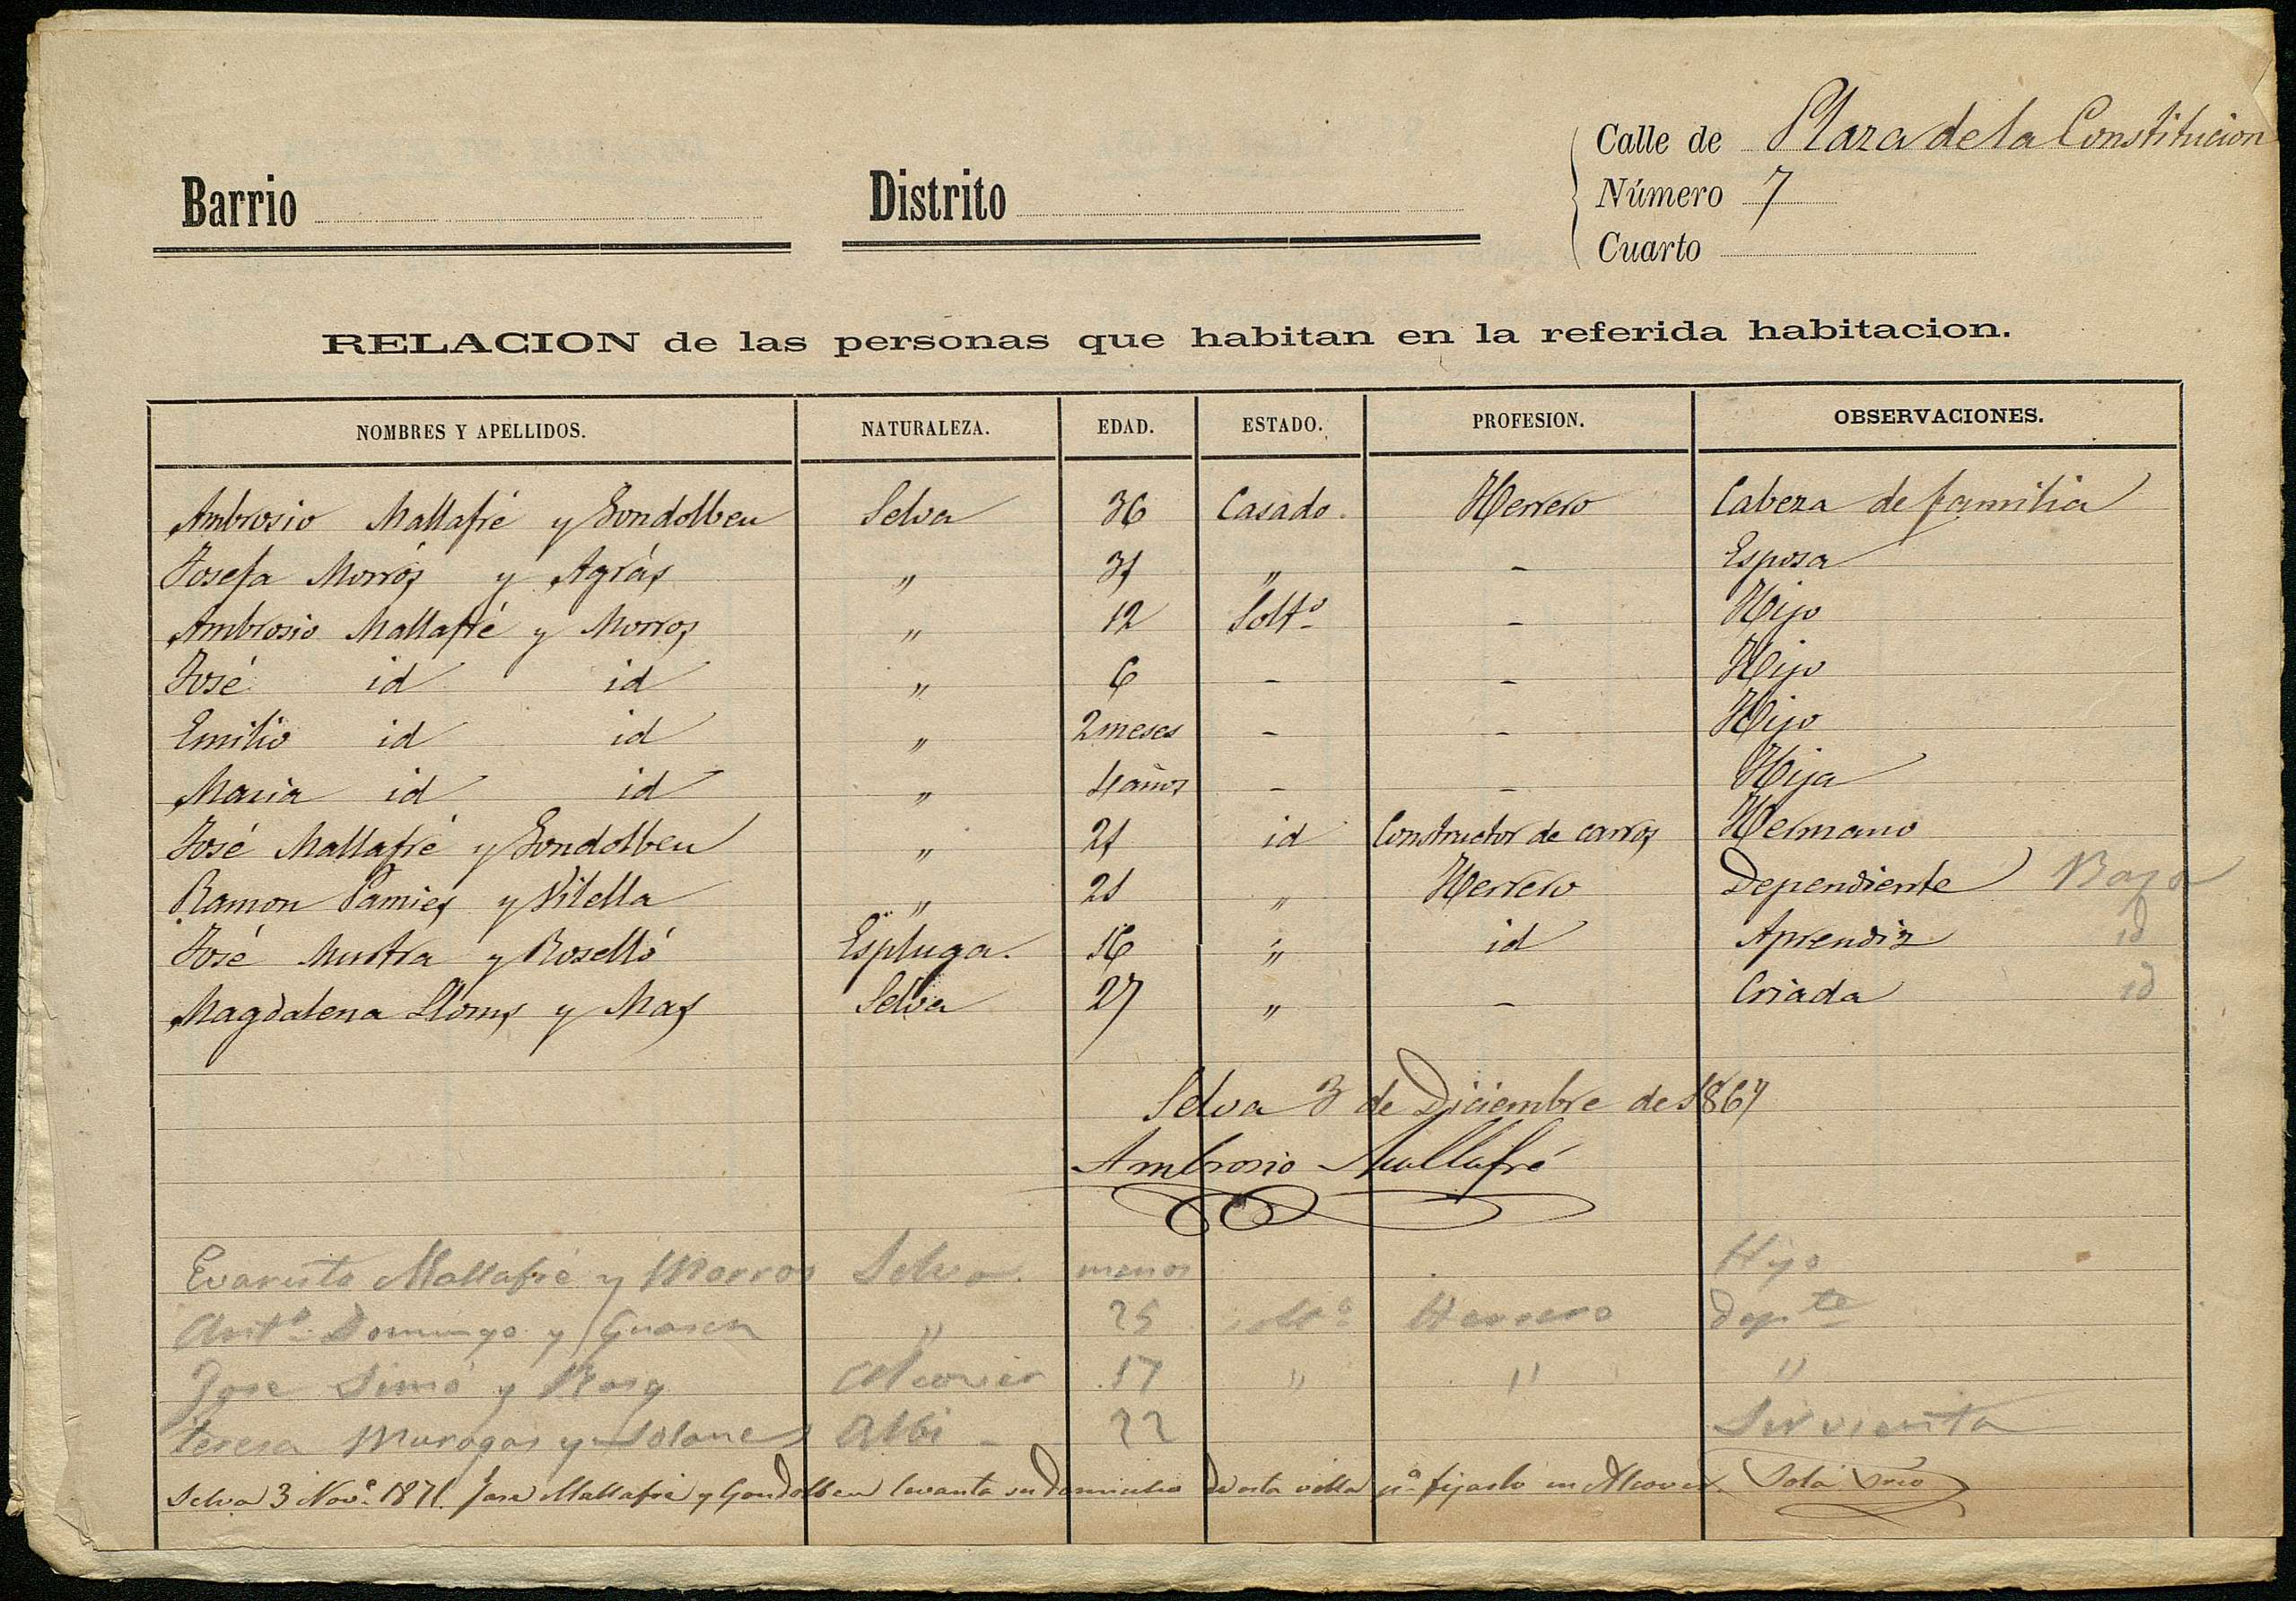 Calle de Plaza de la Constitucion
Barrio Distrito Número 7
Cuarto
RELACION de las personas que habitan en la referida habitacion.
NOMBRES Y APELLIDOS. NATURALEZA. EDAD. ESTADO. PROFESION. OBSERVACIONES.
Ambrosio Mallafré y Gondolbeu Selva 36 Casado. Herrero Cabeza de familia
Josefa Morrós y Agrás " " - Esposa
Ambrosio Mallafré y Morros " 12 Solto - Hijo
José id id " 6 - - Hijo
Emilio id id " 2 meses - - Hijo
Maria id id " 4 años - - Hija
José Mallafré y Gondolbeu " 21 id Constructor de carros Hermano
Ramon Pamies y Vilella " " Herrero Dependiente Baja
José y Roselló Espluga. 16 " id Aprendiz id
Magdalena y Mas Selva 27 " - Criada id
Selva 3 de Diciembre de 1867
Ambrosio Mallafré
Evaristo Mallafré y Morros Selva. menor Hijo
Anto Domingo y Guasch " 25 solto Herrero depte
Jose Simó y Roig Alcover 17 " " "
Teresa y Solanes Albi - 22 Sirvienta
Selva 3 Nove 1871. Jose Mallafré y Gondolbeu levanta su domicilio de esta villa pa fijarlo en Alcover. Solá Srio